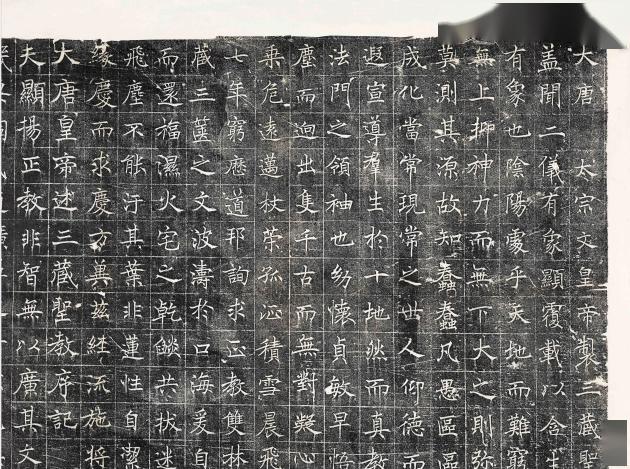 大唐　太宗文皇帝製三藏聖
蓋聞二儀有象顯覆載以含生
有象也陰陽處乎天地而難窮
無上抑神力而無下大之則弥
莫測其源故知蠢蠢凡愚區區
成化當常現常之世人仰德而
遐宣導羣生於十地然而真教
法門之領袖也幼懷貞敏早悟
塵而迥出隻千古而無對凝心
乗危遠邁杖策孤征積雪晨飛
七年窮歷道邦詢求正教雙林
藏三篋之文波濤於口海爰自
而還福濕火宅之乾燄共拔迷
飛塵不能汙其葉非蓮性自潔
緣慶而求慶方冀兹經流施將
大唐皇帝述三藏聖教序記
夫顯揚正教非智無以廣其文